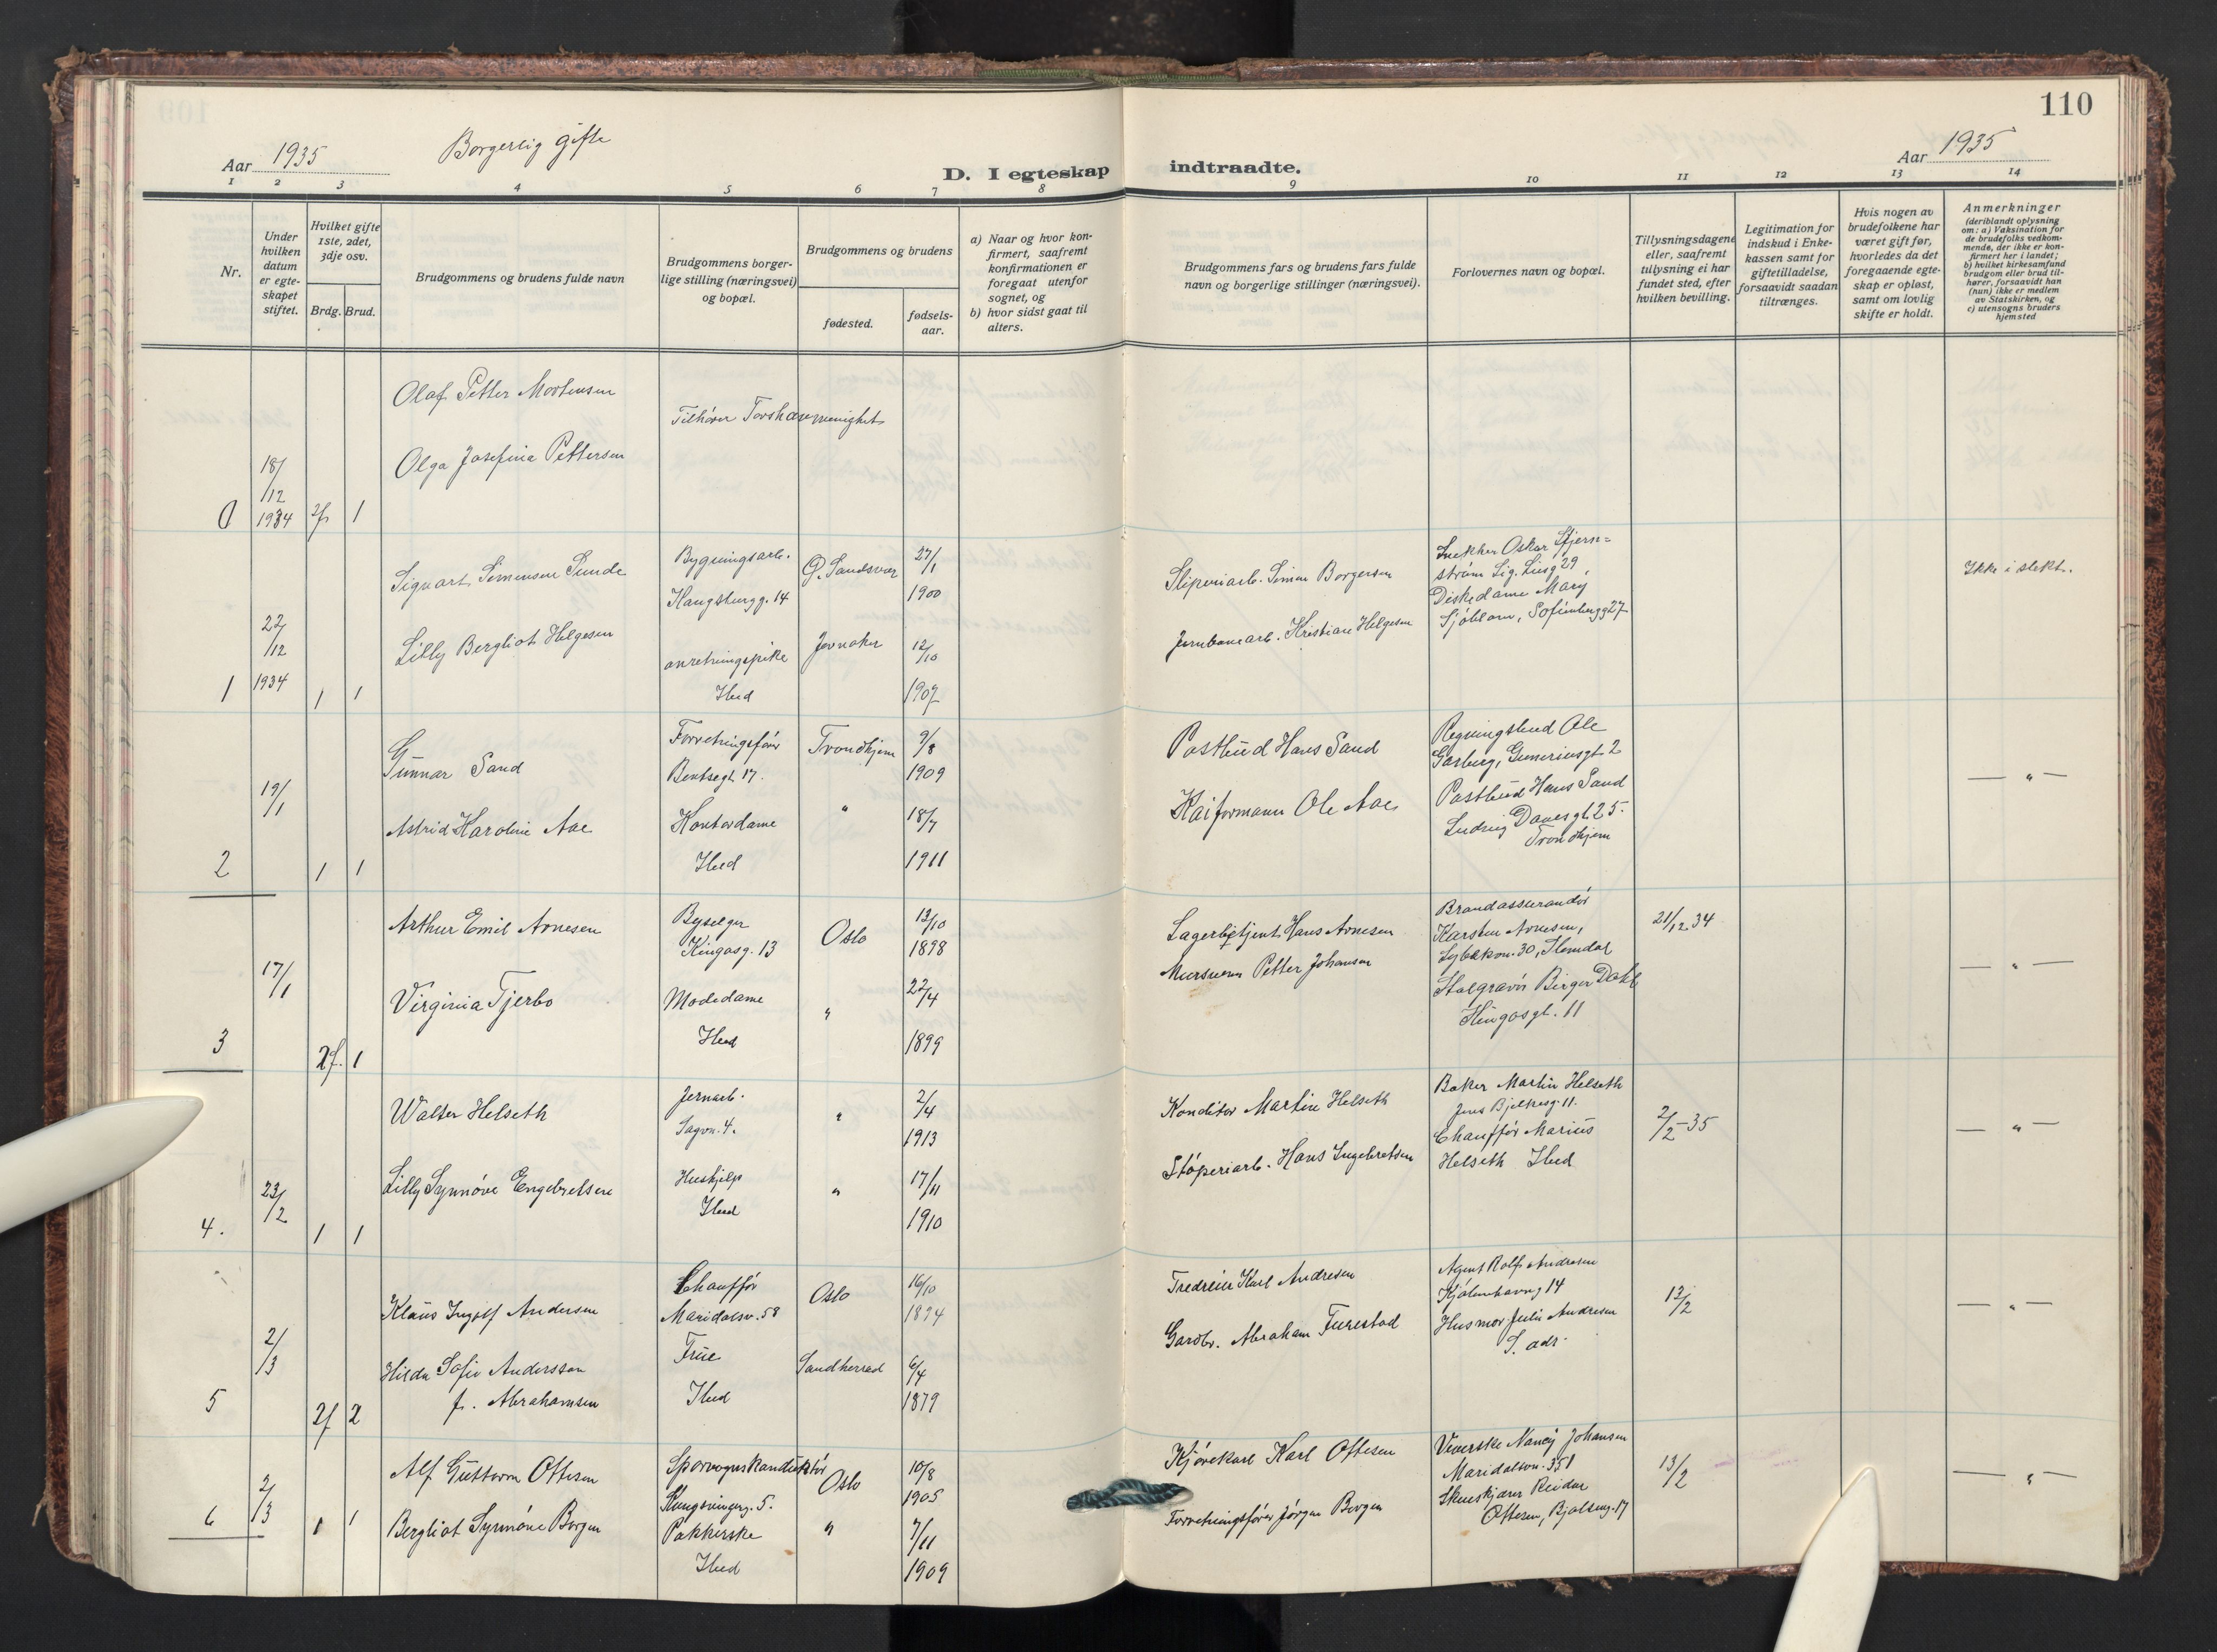 110
Aar 1935
Borgerlig gifte
D. I egteskap indtraadte.
Aar 1935
1 2 3 4 5 6 7 8 9 10 11 12 13 14
Nr.
Under
hvilken
datum
er egte-
skapet
stiftet.
Hvilket gifte
1ste, 2det,
3dje osv.
Brdg. Brud.
Brudgommens og brudens fulde navn
Brudgommens borger-
lige stilling (næringsvei)
og bopæl.
Brudgommens og brudens
fødested.
fødsels-
aar.
a) Naar og hvor kon-
firmert, saafremt
konfirmationen er
foregaat utenfor
sognet, og
b) hvor sidst gaat til
alters.
Brudgommens fars og brudens fars fulde
navn og borgerlige stillinger (næringsvei).
Forlovernes navn og bopæl.
Tillysningsdagene
eller, saafremt
tillysning ei har
fundet sted, efter
hvilken bevilling.
Legitimation for
indskud i Enke-
kassen samt for
giftetilladelse,
forsaavidt saadan
tiltrænges.
Hvis nogen av
brudefolkene har
været gift før,
hvorledes da det
foregaaende egte-
skap er opløst,
samt om lovlig
skifte er holdt.
Anmerkninger
(deriblandt oplysning
om: a) Vaksination for
de brudefolks vedkom-
mende, der ikke er kon-
firmert her i landet;
b) hvilket kirkesamfund
brudgom eller brud til-
hører, forsaavidt han
(hun) ikke er medlem
av Statskirken, og
c) utensogns bruders
hjemsted
0
18/12
1934
2f. 1
Olaf Petter Mortensen
Olga Josefine Pettersen
Tilhører Torshaugmenighet
1
22/12
1934
1 1
Sigvart Simensen Sunde
Lilly Bergliot Helgesen
Bygningsarb.
Haugsburgg. 14
anretningspike
Ibid
Ø. Sandsvær
Jevnaker
27/1
1900
12/10
1907
Sliperiarb. Simen Borgersen
Jernbanearb. Kristian Helgesen
Snekker Oskar Stjern=
strøm Sig. Lusg 29,
Diskedame Mary
Sjøblom, Sofienbergg 27
Ikke i slekt.
2
19/1
1 1
Gunnar Sand
Astrid Karoline Aae
Forretningsfører
Bentsegt. 17.
Kontordame
Ibid
Trondhjem
"
9/8
1909
18/7
1911
Postbud Hans Sand
Kaiformann Ole Aae
Regningsbud Ole
Garberg, Guneriusgt 2
Postbud Hans Sand
Ludvig Daaesgt. 25.
Trondhjem
— " —
3
17/1
2f. 1
Arthur Emil Arnesen
Virginia Tjerbo
Byselger
Kingosg. 13
Modedame
Ibid
Oslo
"
13/10
1898
22/4
1899
Lagerbetjent Hans Arnesen
Mursvenn Petter Johansen
Brandassurandør
Karsten Arnesen,
30, Slemdal
Stålgravør Birger Dahl
Kingosgt. 11
21/12 34
— " —
4.
23/2
1 1
Walter Helseth
Lilly Synnøve Engebretsen
Jernarb.
Sagvn. 4.
Hushjelp
Ibid
"
"
2/4
1913
17/11
1910
Konditor Martin Helseth
Støperiarb. Hans Ingebretsen
Baker Martin Helseth
Jens Bjelkesg. 11.
Chauffør Marius
Helseth Ibid
2/2-35
— " —
5
2/3
2f 2
Klaus Ingolf Andersen
Hilda Sofie Anderssen
f. Abrahamsen
Chauffør
Maridalsv. 58
Frue
Ibid
Oslo
Sandherred
16/10
1894
6/4
1879
Tredreier Karl Andresen
Gardbr. Abraham Furestad
Agent Rolf Andresen
Kjøbenhavng 14
Husmor Julie Andresen
S. adr.
12/2
— " —
6
2/3
1 1
Alf Guttorm Ottesen
Bergliot Synnøve Borgen
Sporvognskonduktør
Kongsvingerg. 5.
Pakkerske
Ibid
Oslo
"
10/8
1905
7/11
1909
Kjørekarl Karl Ottesen
Forretningsfører Jørgen Borgen
Veverske Nancy Johansen
Maridalsvn. 351
Skueskjærer Reidar
Ottesen, Bjølseng. 17
13/2
— " —